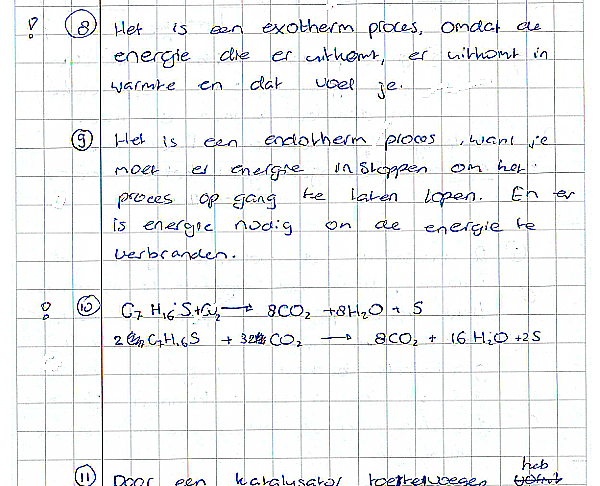 ! ⑧ Het is een exotherm proces, omdat de
energie die er uitkomt, er uitkomt in
warmte en dat voel je.
⑨ Het is een endotherm proces, want je
moet er energie in stoppen om het
proces op gang te laten lopen. En er
is energie nodig om de energie te
verbranden.
⑩ C7 H16 S + O2 → 8CO2 + 8H2O + S
2 C7H16S + 32 CO2 → 8CO2 + 16 H2O + 2S
heb
⑪ Door een katalysator toe te voegen